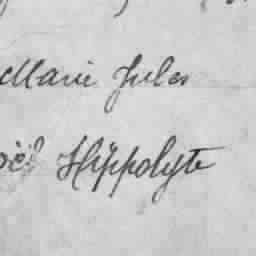 Marie Jules
Hippolyte